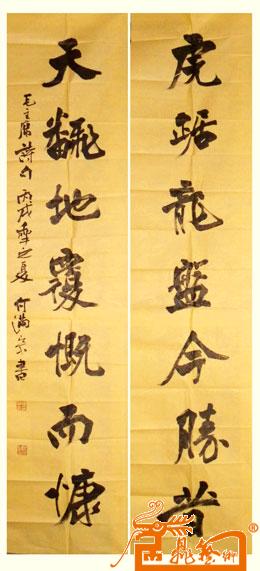 虎踞龍盤今勝昔
天飜地覆慨而慷
毛主席詩句丙戌年之夏何滿宗書